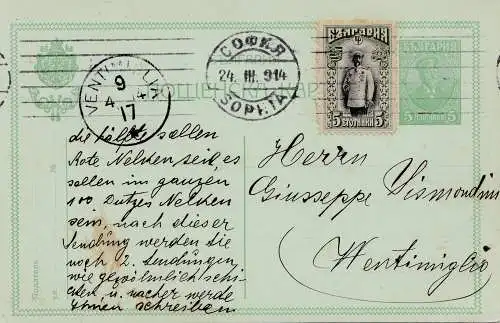 СОФИЯ
24. III. 914
SOPHIA
VENTIMIGLIA
9
4 4
17
БЪЛГАРИЯ
5 СТОТИНКИ 5
БЪЛГАРИЯ
5 СТОТИНКИ 5
ПОЩЕНСКА КАРТА
die hälfte sollen
Rote Nelken seid, es
sollen im ganzen
100 Dutzes Nelken
sein, nach dieser
Sendung werden Sie
noch 2. Sendungen,
wie gewöhnlich schi-
cken, u. nacher werde
Ihnen schreiben
Herrn
Giuseppe Vismondini
Wentimiglio